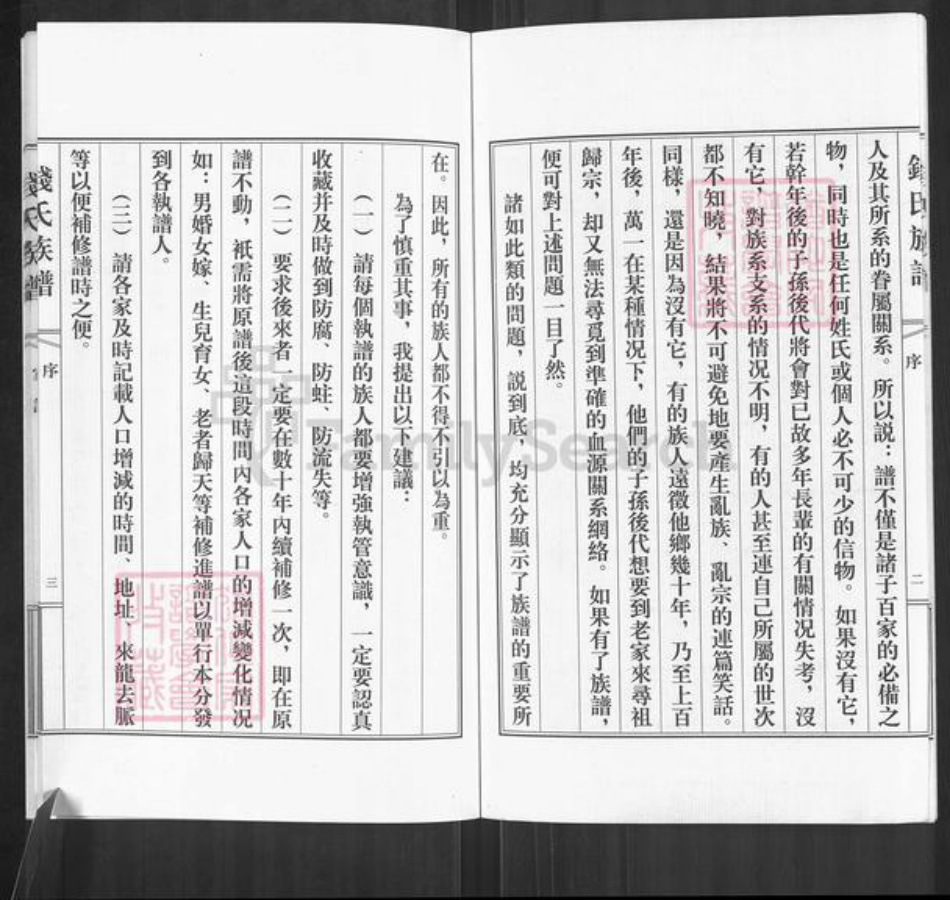 錢氏族譜
序
二
人及其所系的眷屬關系。所以説：譜不僅是諸子百家的必備之
物，同時也是任何姓氏或個人必不可少的信物。如果沒有它，
若幹年後的子孫後代將會對已故多年長輩的有關情况失考，沒
有它，對族系支系的情况不明，有的人甚至連自己所屬的世次
都不知曉，結果將不可避免地要產生亂族、亂宗的連篇笑話。
同樣，還是因為沒有它，有的族人遠徵他鄉幾十年，乃至上百
年後，萬一在某種情况下，他們的子孫後代想要到老家來尋祖
歸宗，却又無法尋覓到準確的血源關系網絡。如果有了族譜，
便可對上述問題一目了然。
諸如此類的問題，説到底，均充分顯示了族譜的重要所
在。因此，所有的族人都不得不引以為重。
為了慎重其事，我提出以下建議：
（一）請每個執譜的族人都要增強執管意識，一定要認真
收藏并及時做到防腐、防蛀、防流失等。
（二）要求後來者一定要在數十年內續補修一次，即在原
譜不動，衹需將原譜後這段時間內各家人口的增減變化情况
如：男婚女嫁、生兒育女、老者歸天等補修進譜以單行本分發
到各執譜人。
（三）請各家及時記載人口增減的時間、地址、來龍去脈
等以便補修譜時之便。
錢氏族譜
序
三
FamilySearch